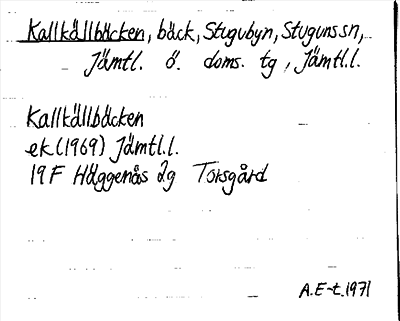 Kallkällbäcken, bäck, Stugubyn, Stuguns sn,
Jämtl. ö. doms. tg, Jämtl.l.
Kallkällbäcken
ek.(1969) Jämtl.l.
19F Häggenås 2g Torsgård
A.E-t.1971